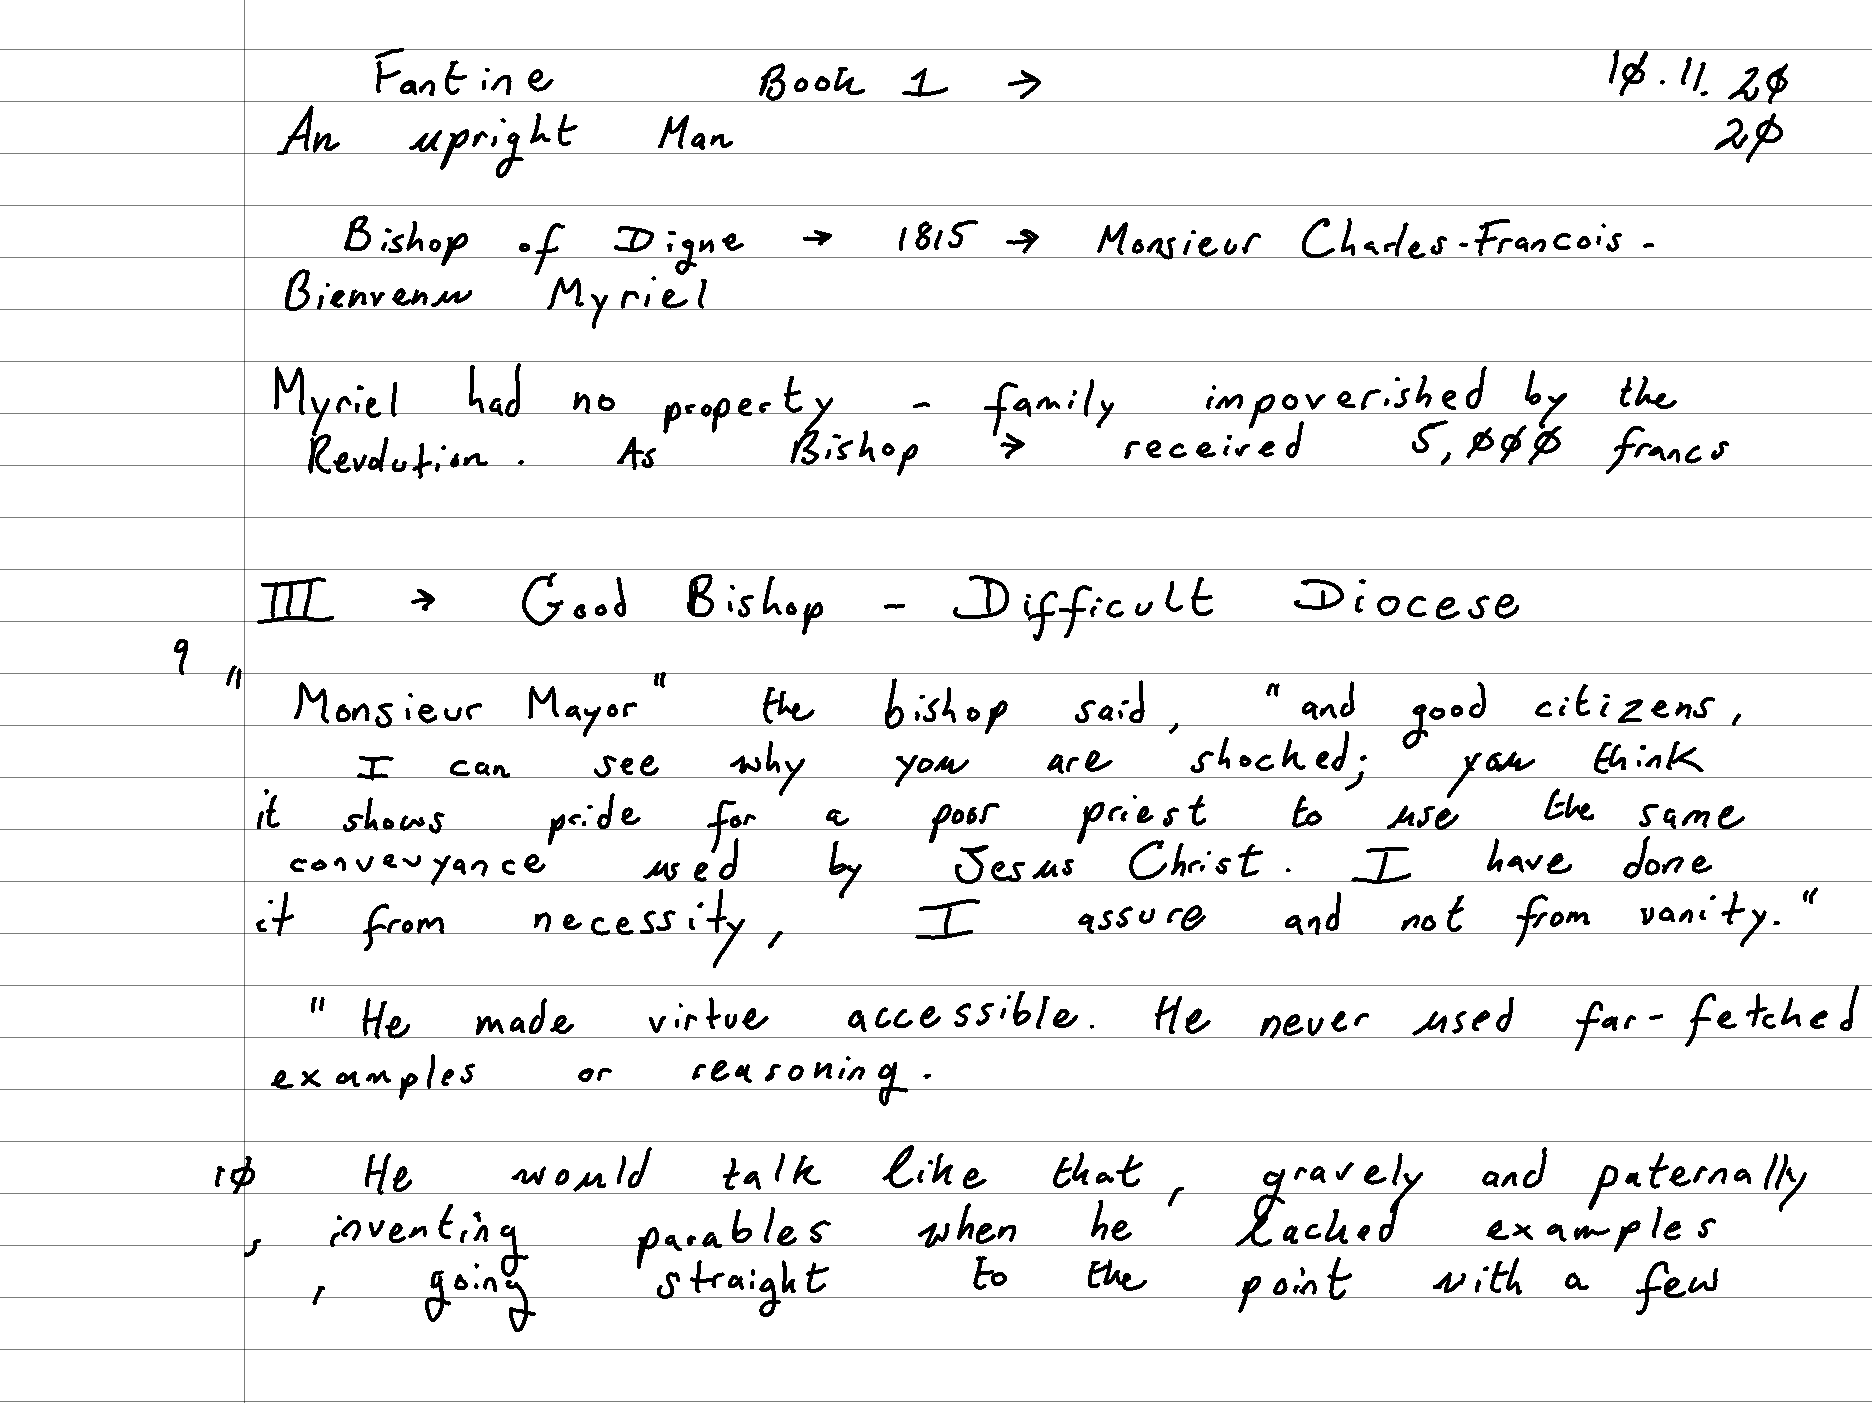 Fantine Book 1 → 10.11.20
An upright Man 20
Bishop of Digne → 1815 → Monsieur Charles-Francois-
Bienvenu Myriel
Myriel had no property - family impoverished by the
Revolution. As Bishop → received 5,000 francs
III → Good Bishop - Difficult Diocese
9
" Monsieur Mayor" the bishop said, "and good citizens,
I can see why you are shocked; you think
it shows pride for a poor priest to use the same
conveuyance used by Jesus Christ. I have done
it from necessity, I assure and not from vanity."
" He made virtue accessible. He never used far-fetched
examples or reasoning.
10 He would talk like that, gravely and paternally
, inventing parables when he lacked examples
, going straight to the point with a few